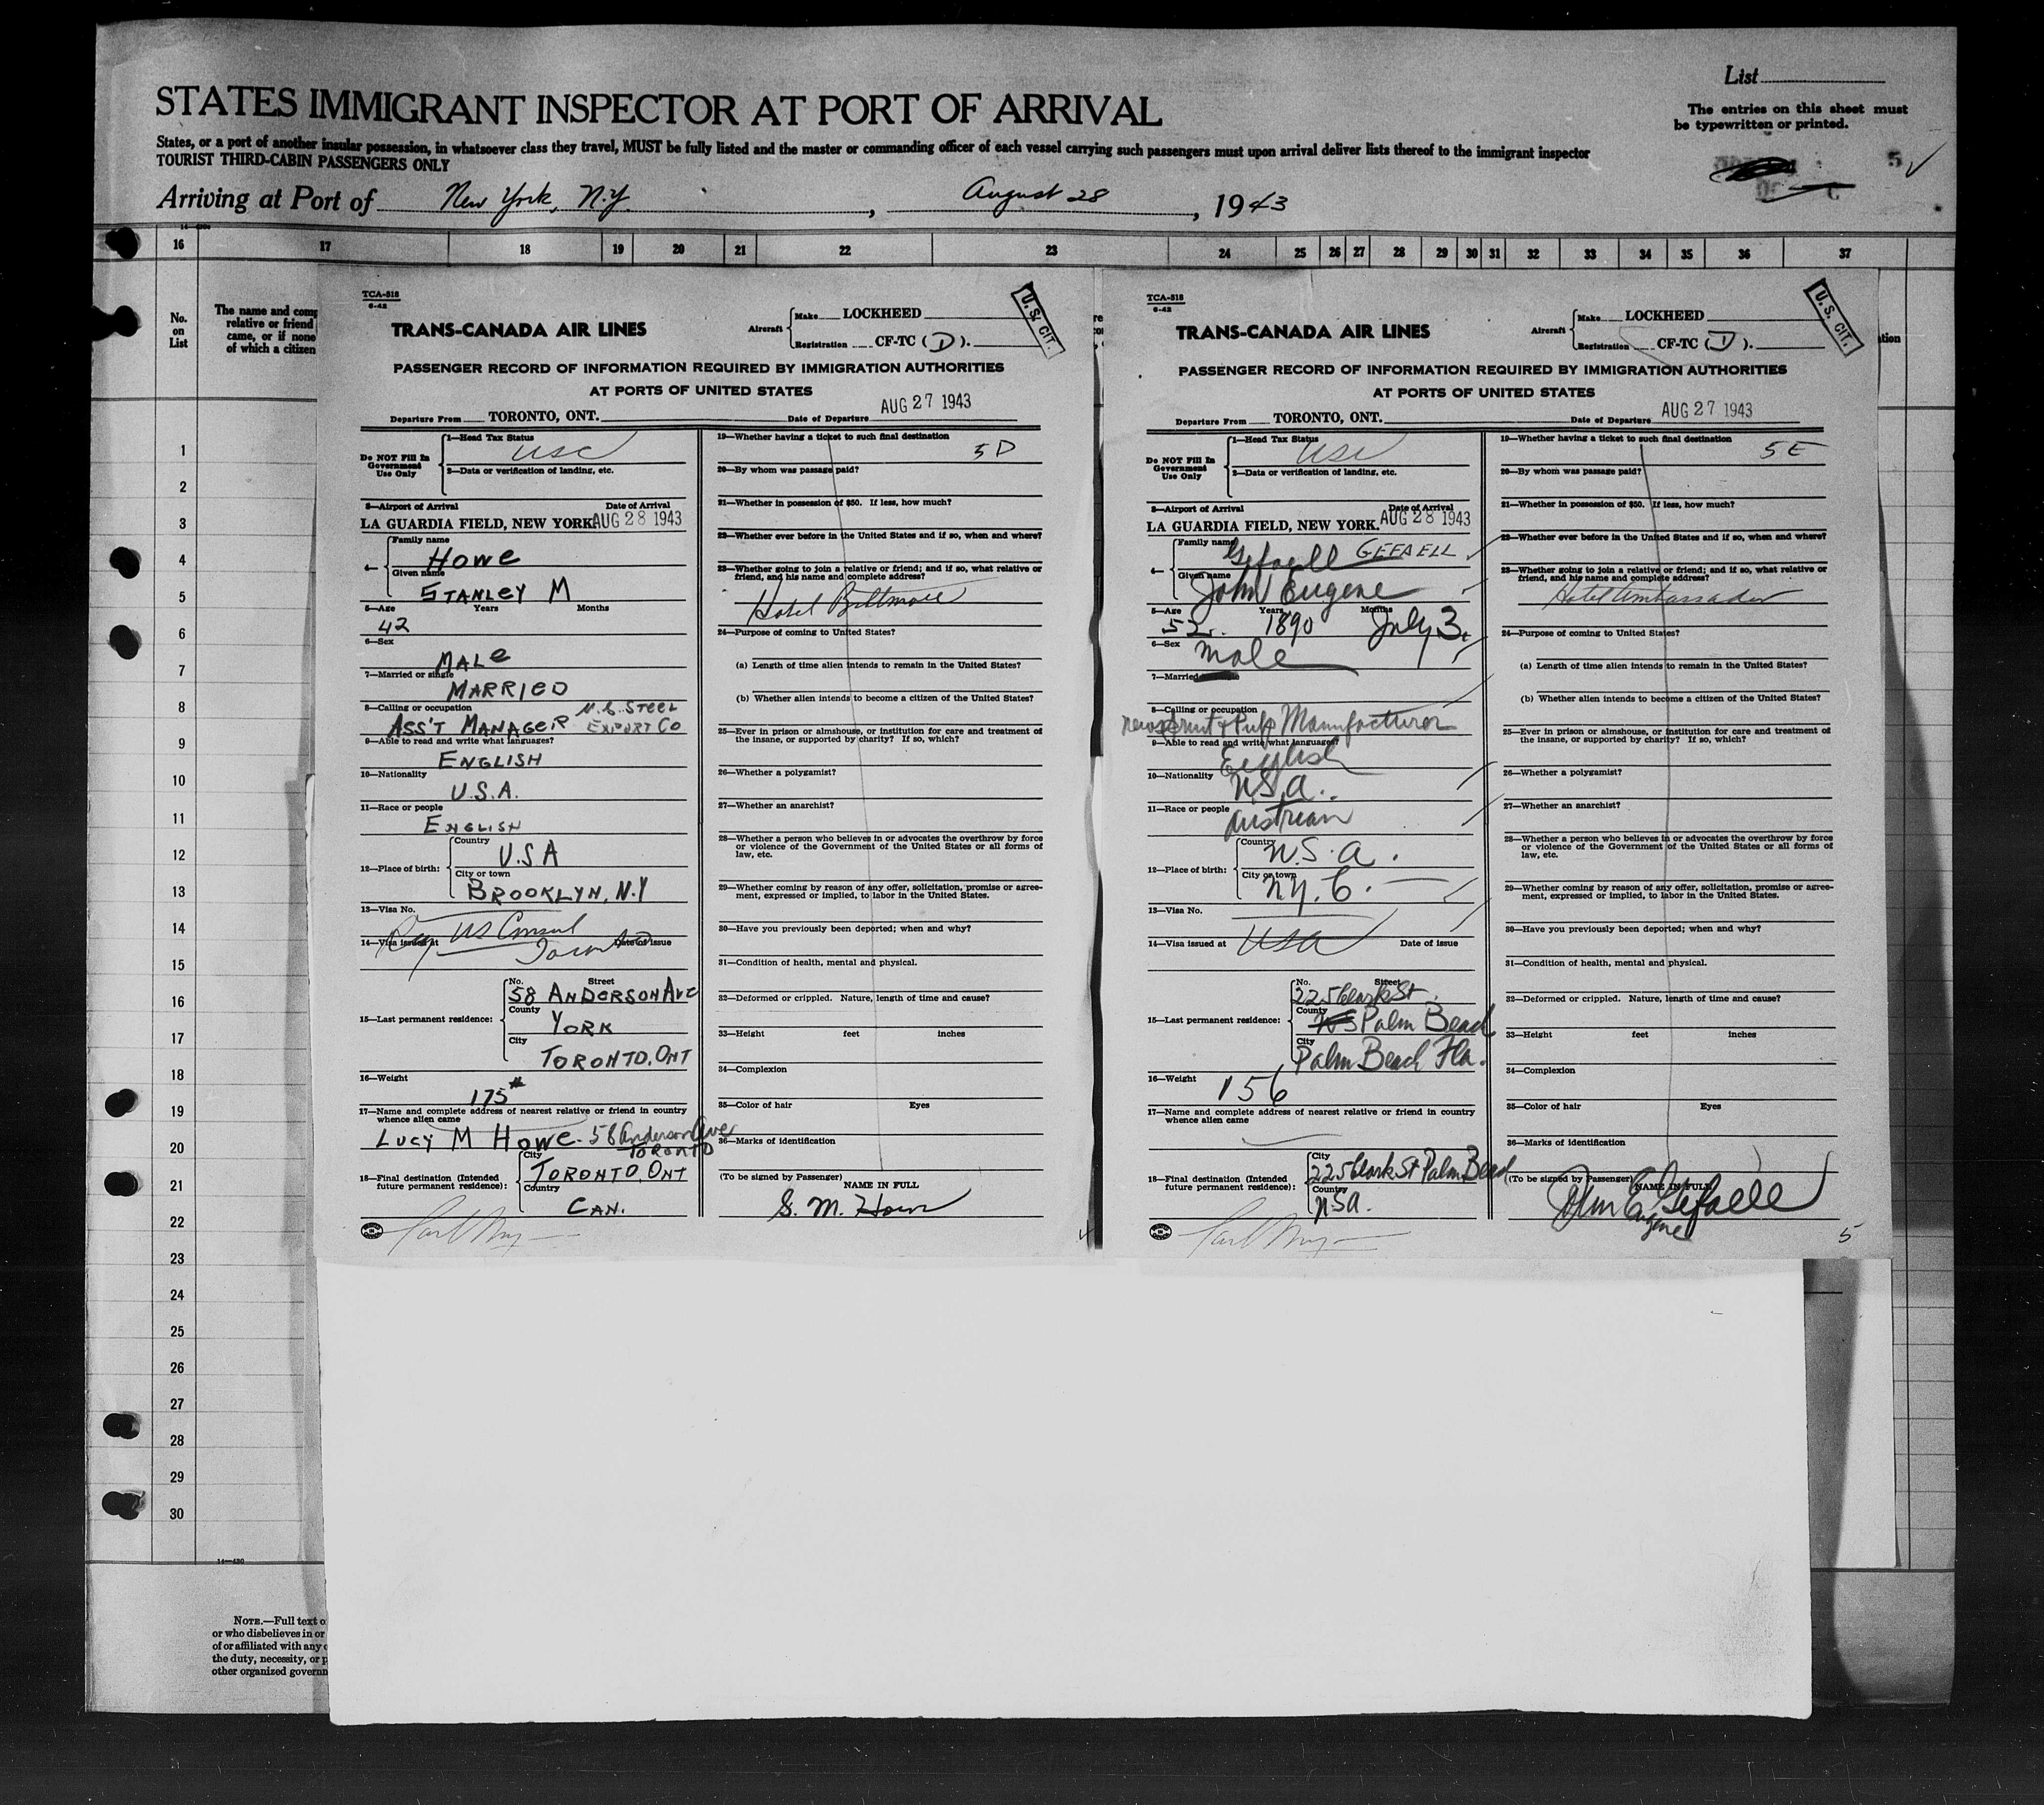 List
STATES IMMIGRANT INSPECTOR AT PORT OF ARRIVAL
The entries on this sheet must
be typewritten or printed.
States, or a port of another insular possession, in whatsoever class they travel, MUST be fully listed and the master or commanding officer of each vessel carrying such passengers must upon arrival deliver lists thereof to the immigrant inspector
TOURIST THIRD-CABIN PASSENGERS ONLY
5
Arriving at Port of New York, N.Y. , August 28 , 1943
16 17 18 19 20 21 22 23 24 25 26 27 28 29 30 31 32 33 34 35 36 37
No.
on
List
The name and comp
relative or friend
came, or if none
of which a citizen
1
2
3
4
5
6
7
8
9
10
11
12
13
14
15
16
17
18
19
20
21
22
23
24
25
26
27
28
29
30
14—430
NOTE.—Full text o
or who disbelieves in or
of or affiliated with any o
the duty, necessity, or p
other organized governm
TCA-518
6-42
TRANS-CANADA AIR LINES
Aircraft
Make LOCKHEED
Registration CF-TC ( D ).
U.S. CIT.
PASSENGER RECORD OF INFORMATION REQUIRED BY IMMIGRATION AUTHORITIES
AT PORTS OF UNITED STATES
Departure From TORONTO, ONT. Date of Departure AUG 27 1943
Do NOT Fill In
Government
Use Only
1—Head Tax Status
USC
2—Data or verification of landing, etc.
3—Airport of Arrival Date of Arrival
LA GUARDIA FIELD, NEW YORK. AUG 28 1943
4—
Family name
HOWE
Given name
STANLEY M
5—Age Years Months
42
6—Sex
MALE
7—Married or single
MARRIED
8—Calling or occupation
ASS'T MANAGER U.S. STEEL
EXPORT CO
9—Able to read and write what languages?
ENGLISH
10—Nationality
U.S.A.
11—Race or people
ENGLISH
12—Place of birth:
Country
U.S.A
City or town
BROOKLYN, N.Y
13—Visa No.
Reg US Consul
14—Visa issued at Date of issue
Toronto
15—Last permanent residence:
No. Street
58 ANDERSON AVE
County
YORK
City
TORONTO, ONT
16—Weight
175#
17—Name and complete address of nearest relative or friend in country
whence alien came
LUCY M HOWE - 58 Anderson Ave
TORONTO
18—Final destination (Intended
future permanent residence):
City
TORONTO, ONT
Country
CAN.
19—Whether having a ticket to such final destination
5D
20—By whom was passage paid?
21—Whether in possession of $50. If less, how much?
22—Whether ever before in the United States and if so, when and where?
23—Whether going to join a relative or friend; and if so, what relative or
friend, and his name and complete address?
Hotel Biltmore
24—Purpose of coming to United States?
(a) Length of time alien intends to remain in the United States?
(b) Whether alien intends to become a citizen of the United States?
25—Ever in prison or almshouse, or institution for care and treatment of
the insane, or supported by charity? If so, which?
26—Whether a polygamist?
27—Whether an anarchist?
28—Whether a person who believes in or advocates the overthrow by force
or violence of the Government of the United States or all forms of
law, etc.
29—Whether coming by reason of any offer, solicitation, promise or agree-
ment, expressed or implied, to labor in the United States.
30—Have you previously been deported; when and why?
31—Condition of health, mental and physical.
32—Deformed or crippled. Nature, length of time and cause?
33—Height feet inches
34—Complexion
35—Color of hair Eyes
36—Marks of identification
(To be signed by Passenger)
NAME IN FULL
S. M. Howe
TCA-518
6-42
TRANS-CANADA AIR LINES
Aircraft
Make LOCKHEED
Registration CF-TC ( D ).
U.S. CIT.
PASSENGER RECORD OF INFORMATION REQUIRED BY IMMIGRATION AUTHORITIES
AT PORTS OF UNITED STATES
Departure From TORONTO, ONT. Date of Departure AUG 27 1943
Do NOT Fill In
Government
Use Only
1—Head Tax Status
USC
2—Data or verification of landing, etc.
3—Airport of Arrival Date of Arrival
LA GUARDIA FIELD, NEW YORK. AUG 28 1943
4—
Family name
Gefaell GEFAELL
Given name
John Eugene
5—Age Years Months
52 1890 July 3
6—Sex
male
7—Married
8—Calling or occupation
newsprint & Pulp Manufacturer
9—Able to read and write what languages?
English
10—Nationality
U.S.A.
11—Race or people
Austrian
12—Place of birth:
Country
U.S.A.
City or town
N.Y.C.
13—Visa No.
14—Visa issued at USA Date of issue
15—Last permanent residence:
No. Street
225 Clark St.
County
Palm Beach
City
Palm Beach Fla.
16—Weight
156
17—Name and complete address of nearest relative or friend in country
whence alien came
18—Final destination (Intended
future permanent residence):
City
225 Clark St Palm Beach
Country
U.S.A.
19—Whether having a ticket to such final destination
5E
20—By whom was passage paid?
21—Whether in possession of $50. If less, how much?
22—Whether ever before in the United States and if so, when and where?
23—Whether going to join a relative or friend; and if so, what relative or
friend, and his name and complete address?
Hotel Ambassador
24—Purpose of coming to United States?
(a) Length of time alien intends to remain in the United States?
(b) Whether alien intends to become a citizen of the United States?
25—Ever in prison or almshouse, or institution for care and treatment of
the insane, or supported by charity? If so, which?
26—Whether a polygamist?
27—Whether an anarchist?
28—Whether a person who believes in or advocates the overthrow by force
or violence of the Government of the United States or all forms of
law, etc.
29—Whether coming by reason of any offer, solicitation, promise or agree-
ment, expressed or implied, to labor in the United States.
30—Have you previously been deported; when and why?
31—Condition of health, mental and physical.
32—Deformed or crippled. Nature, length of time and cause?
33—Height feet inches
34—Complexion
35—Color of hair Eyes
36—Marks of identification
(To be signed by Passenger)
NAME IN FULL
John E. Gefaell
Eugene
5